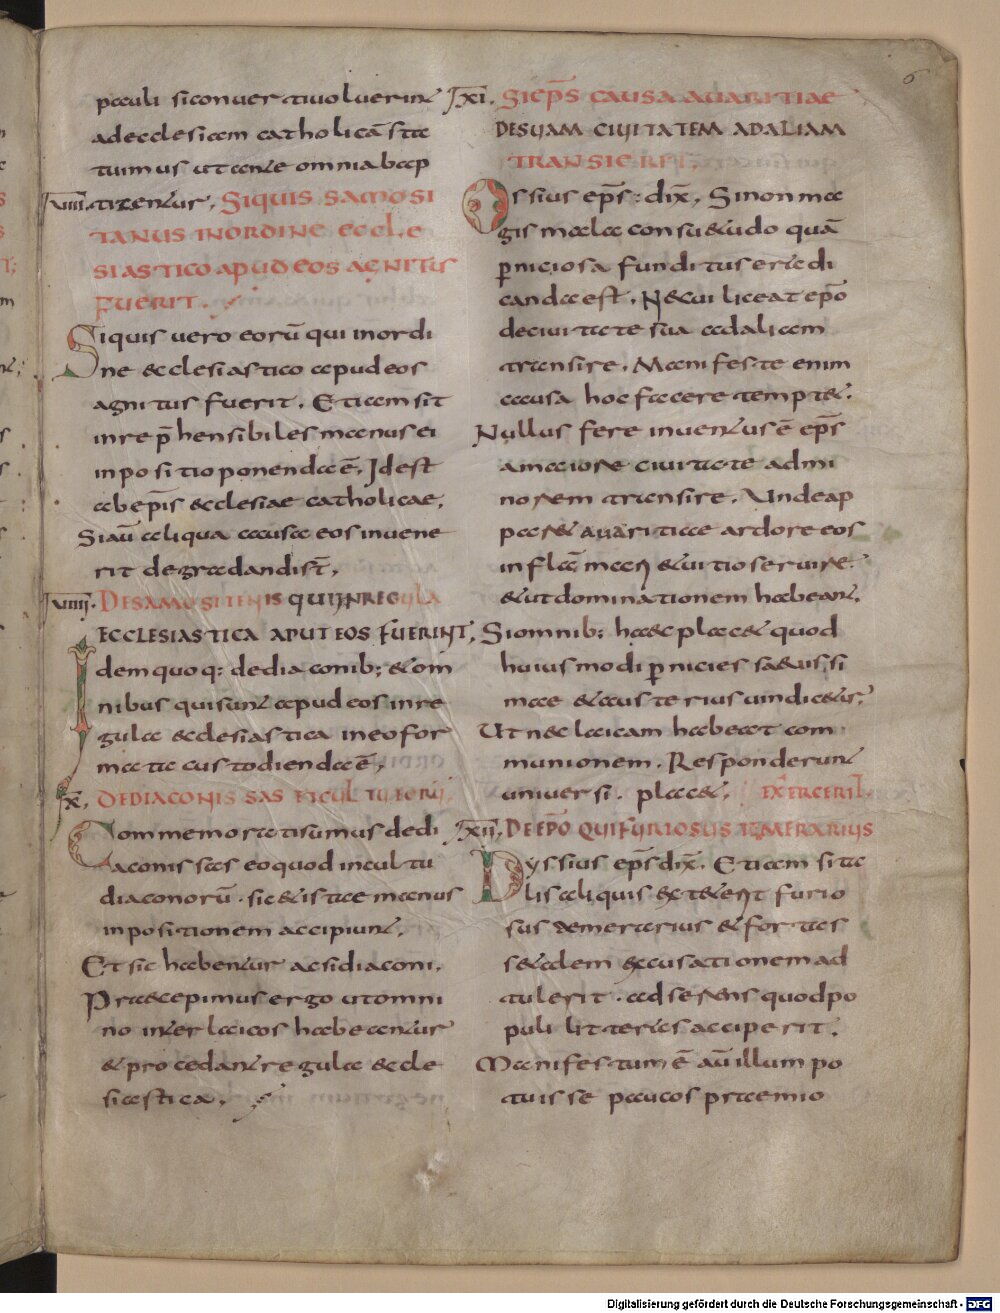 6
pauli si conuersi uoluerint
ad ecclesiam catholicā sta
tuimus ut ante omnia bap
VIII. tizentur. SIQUIS SAMOSI
TANUS IN ORDINE ECCLE
SIASTICO APUD EOS AGNITUS
FUERIT.
Siquis uero eorū qui in ordi
ne ecclesiastico apud eos
agnitus fuerit. Etiam sit
inrep̄hensibiles manus ei
inpositio ponenda ē. Id est
ab ep̄is ecclesiae catholicae.
Si aū aliqua causa eos inuene
rit degradandi st̄.
VIIII. DE SAMOSITENIS QUI IN REGULA
ECCLESIASTICA APUT EOS FUERINT,
Idem quoq: de diaconib; et om
nibus qui sunt apud eos in re
gula ecclesiastica in eo for
ma custodienda ē.
X. DE DIACONIS SAS
Commemorati sumus de di
aconis sas eo quod in cultu
diaconorū. sic et istae manus
inpositionem accipiunt.
Et sic habentur ac si diaconi.
Praecepimus ergo ut omni
no inter laicos habeantur
et procedant regula eccle
siastica.
XI. SI EP̄S CAUSA AUARITIAE
DE SUAM CIUITATEM AD ALIAM
TRANSIERIT.
Ossius ep̄s: dix̄. Si non ma
gis mala consuetudo quā
p̄niciosa funditus eradi
canda est. Ne cui liceat ep̄o
de ciuitate sua ad aliam
transire. Manifeste enim
causa hoc facere temptet.
Nullus fere inuentus ē ep̄s
a maiore ciuitate ad mi
norem transire. Unde ap
paret auaritiae ardore eos
inflāmari et uitio seruire.
et ut dominationem habeant.
Si omnib: haec placet quod
huiusmodi p̄nicies saeuissi
mae et austerius uindicetur.
Ut nec laicam habeat com
munionem. Responderunt
uniuersi. placet.
XII. DE EP̄O QUI FURIOSUS TEMERARIUS
Dyssius ep̄s dix̄. Etiam si ta
lis aliquis exteterit furio
sus temerarius et fortas
se eadem excusationem ad
tulerit. adserens quod po
puli litteras acciperit.
Manifestum ē aū illum po
tuisse paucos praemio
Digitalisierung gefördert durch die Deutsche Forschungsgemeinschaft - DFG